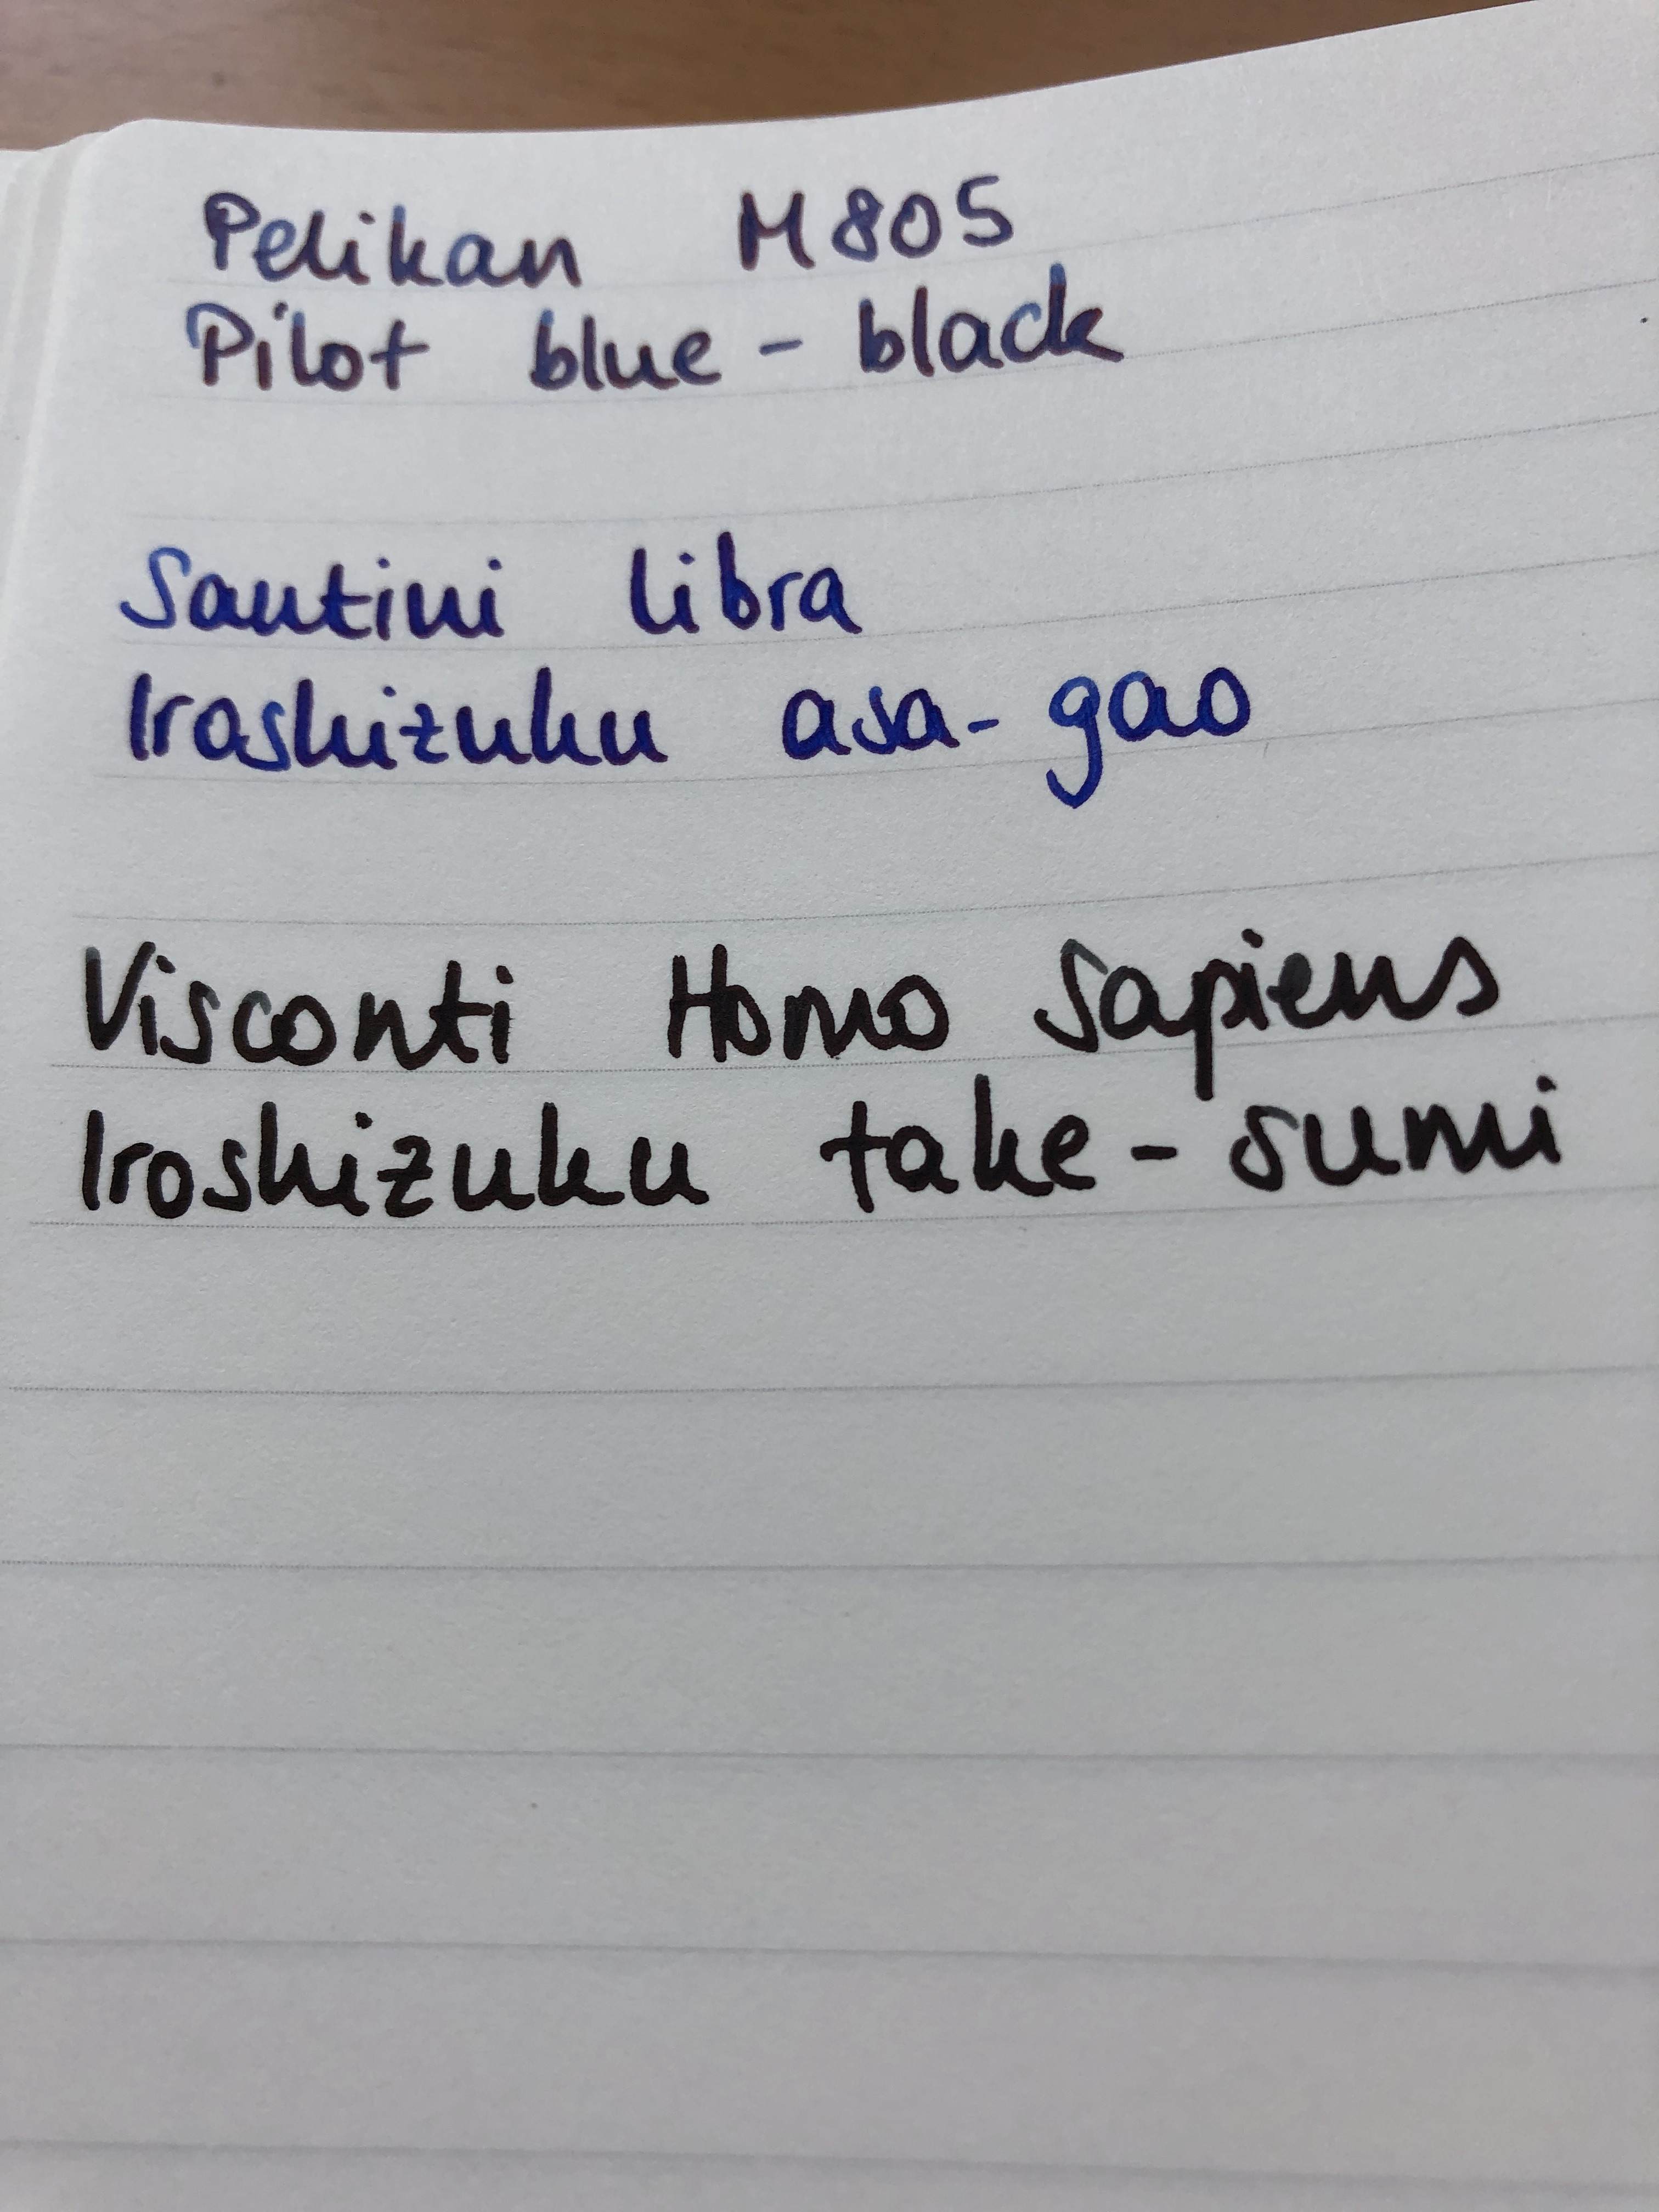 Pelikan M805
Pilot blue-black
Santini libra
Iroshizuku asa-gao
Visconti Homo Sapiens
Iroshizuku take-sumi